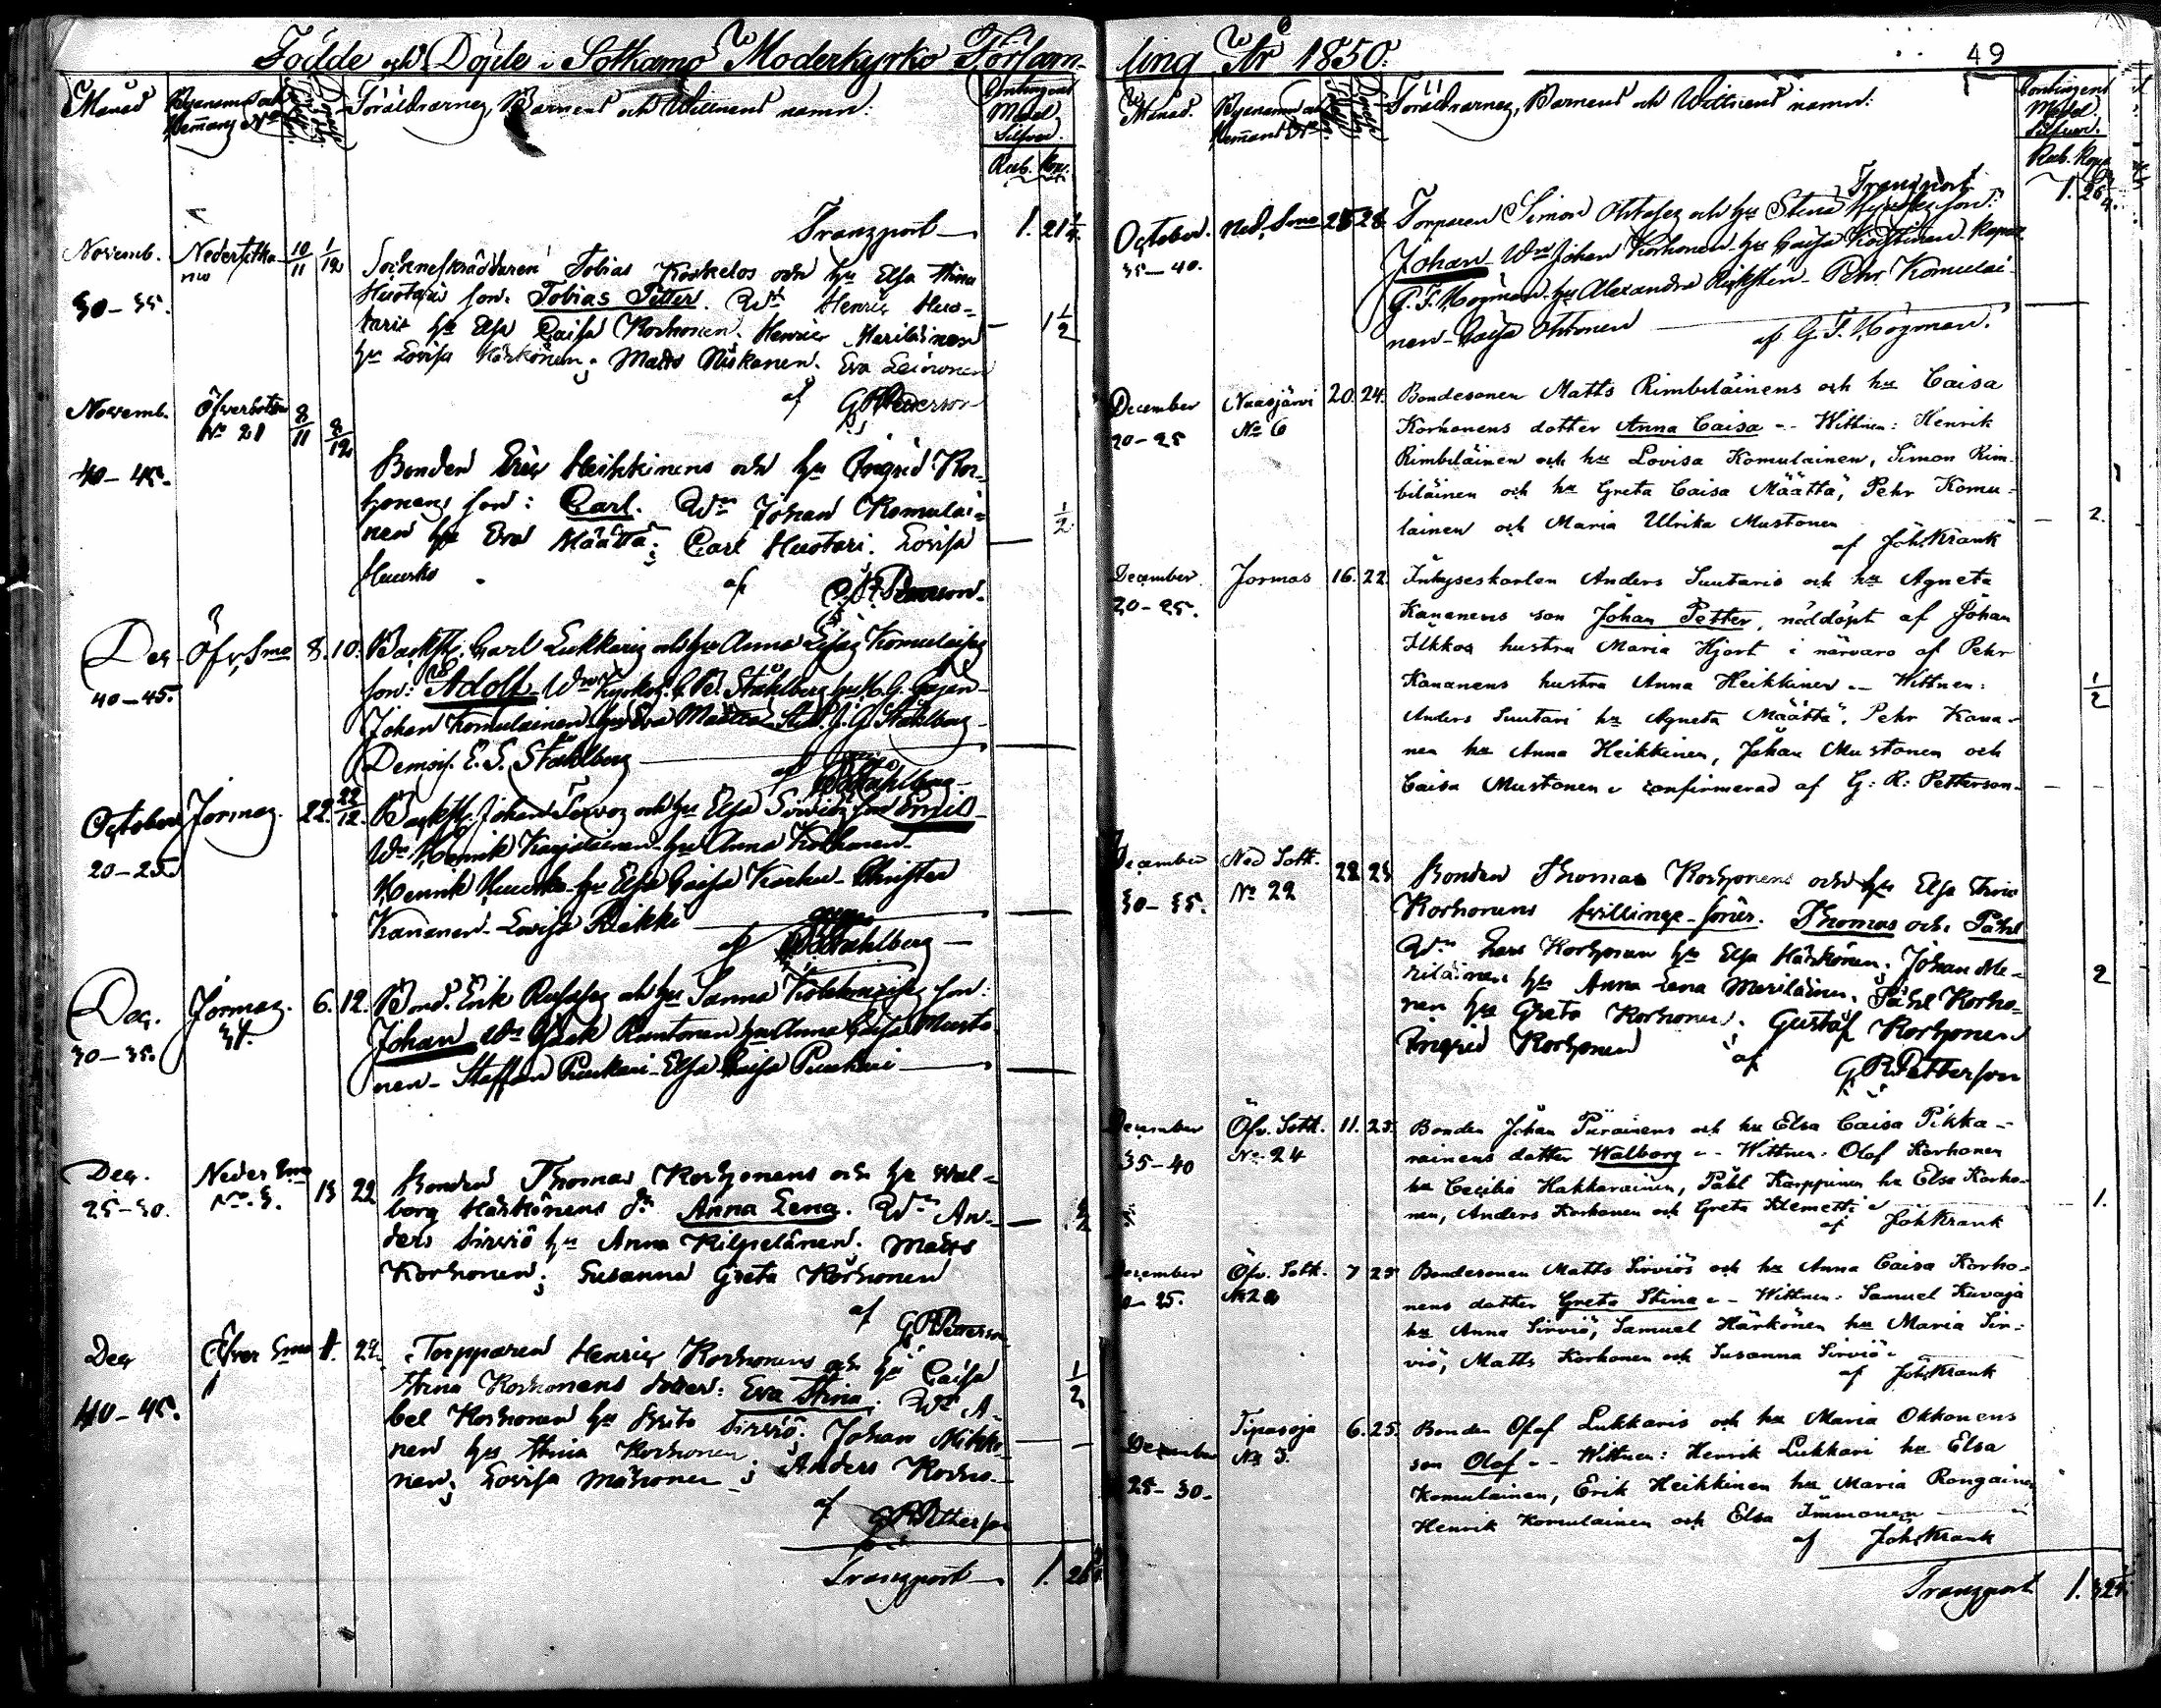 Födde och Döpte i Sotkamo Moderkyrko Försam-
Månad Byanamn och Hemmans No Föräldrarnes, Barnens och Wittnens namn:
Contingent
Medel
Silfver.
Rub. Kop.
Transport 1. 21 1/4.
Novemb. Neder Sotka-
mo
10/11 1/12
30-35.
Sockneskräddaren Tobias Koskelos och hu Elsa Stina
Huotaris son: Tobias Petter. Wn Henric Huo-
taris hu Elsa Caisa Korhonen. Henric Meriläinen
hu Lovisa Härkönen; Matts Niskanen. Eva Leinonen
1 1/2
af G R Petterson
Novemb. Öfversotkamo
No 21
8/11 8/12
40-45.
Bonden Eric Heikkinens och hu Ingrid Kor-
honens son: Carl. Wn Johan Komulai-
nen hu Eva Määttä; Carl Huotari. Lovisa
Huusko
1/2
af G. R. Petterson.
Dec. Öfv. Smo 8. 10.
40-45.
Carl Lukkaris och hu Anna Komulaises
son: Adolf Wn Ståhlberg
Johan Komulainen hu Eva Määttä J. G. Ståhlberg
Demois. E. S. Ståhlberg
af Ståhlberg
October Jormas. 22. 22/12.
20-25.
Johan och hu Elsa son Emil
Wn Henrik Karjalainen hu Anna Korhonen
Henrik Huusko hu Elsa Caisa Christer
Kananen Lovisa Rikki
af Ståhlberg
Dec. Jormas. 6. 12.
30-35.
Bond. Erik och hu Sanna son:
Johan Wn Rautonen hu Anna Caisa Musto-
nen Staffan Puukari Elsa Caisa Puukari
Dec. Neder Smo
No. 3.
13 22
25-30.
Bonden Thomas Korhonens och hu Wal-
borg Härkönens dr Anna Lena. Wn An-
ders Sirviö hu Anna Kilpeläinen. Matts
Korhonen; Susanna Greta Korhonen
1/2
af G R Petterson
Dec Öfver Smo 11. 22.
40-45.
Torpparen Henric Korhonens och hu Caisa
Stina Korhonens dotter: Eva Stina. Wn A-
bel Korhonen hu Brita Sirviö. Johan Mikko-
nen hu Stina Korhonen; Anders Korho-
nen; Lovisa Mähönen
1/2
af G R Petterson
Transport 1. 26
ling År 1850.
49
Månad. Byanamn och Hemmans No Föräldrarnes, Barnens och Wittnens namn:
Contingent
Medel
Silfver.
Rub. Kop.
Transport 1. 26
October. Ned. Smo 25 28
35-40.
Torparen Simon och hu Stina son:
Johan Wn Johan Korhonen hu Caisa
G. F. Högman hu Alexandra Pehr Komulai-
nen Caisa Ohtonen
af G. F. Högman.
December Naasjärvi 20. 24.
20-25 No 6
Bondesonen Matts Rimbiläinens och hu Caisa
Korhonens dotter Anna Caisa -- Wittnen: Henrik
Rimbiläinen och hu Lovisa Komulainen, Simon Rim-
biläinen och hu Greta Caisa Määttä, Pehr Komu-
lainen och Maria Ulrika Mustonen
2.
af Joh. Krank
December Jormas 16. 22.
20-25.
Inhyseskarlen Anders Suutaris och hu Agneta
Kananens son Johan Petter, nöddöpt af Johan
Ilkkos hustru Maria Hjort i närvaro af Pehr
Kananens hustru Anna Heikkinen -- Wittnen:
Anders Suutari hu Agneta Määttä, Pehr Kana-
nen hu Anna Heikkinen, Johan Mustonen och
Caisa Mustonen confirmerad af G: R: Petterson
1/2
December Ned Sotk. 22 25
30-35. No 22
Bonden Thomas Korhonens och hu Elsa Stina
Korhonens tvillinge-söner. Thomas och Påhl
Wn Lars Korhonen hu Elsa Härkönen; Johan Me-
riläinen hu Anna Lena Meriläinen. Påhl Korho-
nen hu Greta Korhonen; Gustaf Korhonen
Ingrid Korhonen
2
af G. R. Petterson
December Öfv. Sotk. 11. 25.
35-40 No 24
Bonden Johan Piirainens och hu Elsa Caisa Pikka-
rainens dotter Walborg -- Wittnen: Olof Korhonen
hu Cecilia Hakkarainen, Påhl Karppinen hu Elsa Korho-
nen, Anders Korhonen och Greta Klemetti
1.
af Joh. Krank
December Öfv. Sotk. 7 25
0-25.
Bondesonen Matts Sirviös och hu Anna Caisa Korho-
nens dotter Greta Stina -- Wittnen: Samuel Kuvaja
hu Anna Sirviö, Samuel Härkönen hu Maria Sir-
viö, Matts Korhonen och Susanna Sirviö
af Joh. Krank
December Tipasoja 6. 25.
No 3.
25-30.
Bonden Olof Lukkaris och hu Maria Okkonens
son Olof -- Wittnen: Henrik Lukkari hu Elsa
Komulainen, Erik Heikkinen hu Maria Rongainen
Henrik Komulainen och Elsa Immonen
af Joh. Krank
Transport 1.